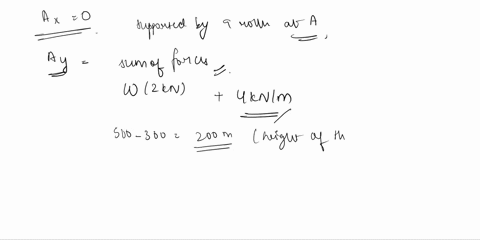 Ax = 0 supported by a roller at A,
Ay = sum of forces
W(2kN) + 4kN/m
500-300 = 200m (height of th